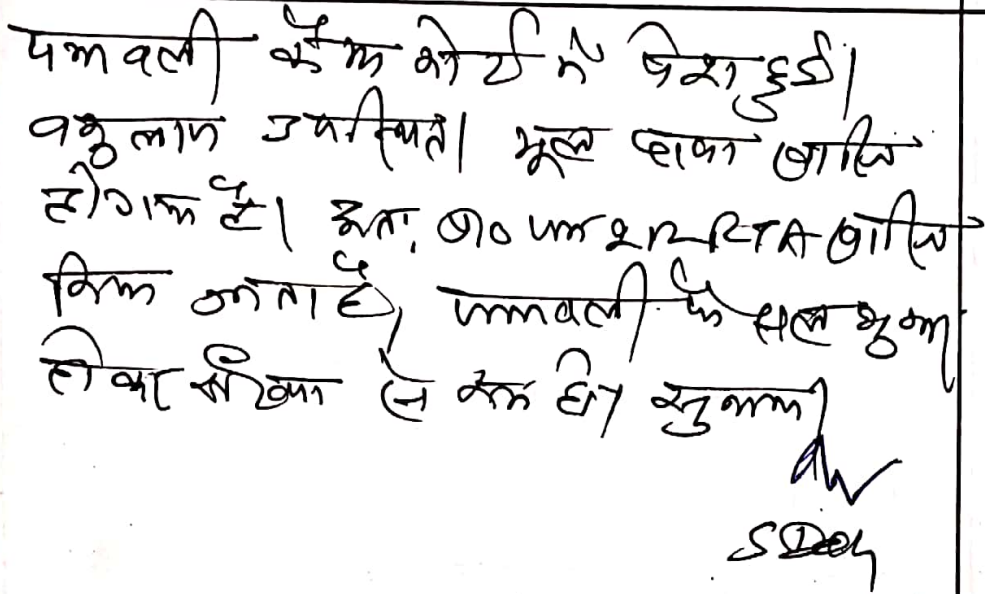 पत्रावली कैम्प कोर्ट में पेश हुई।
वकुलाय उपस्थित। मूल दावा खारिज
हो गया है। अतः प्रा० पत्र 212 RTA खारिज
किया जाता है, पत्रावली फैसल शुमार
होकर संख्या से कम हो। सुनाया।
SDO